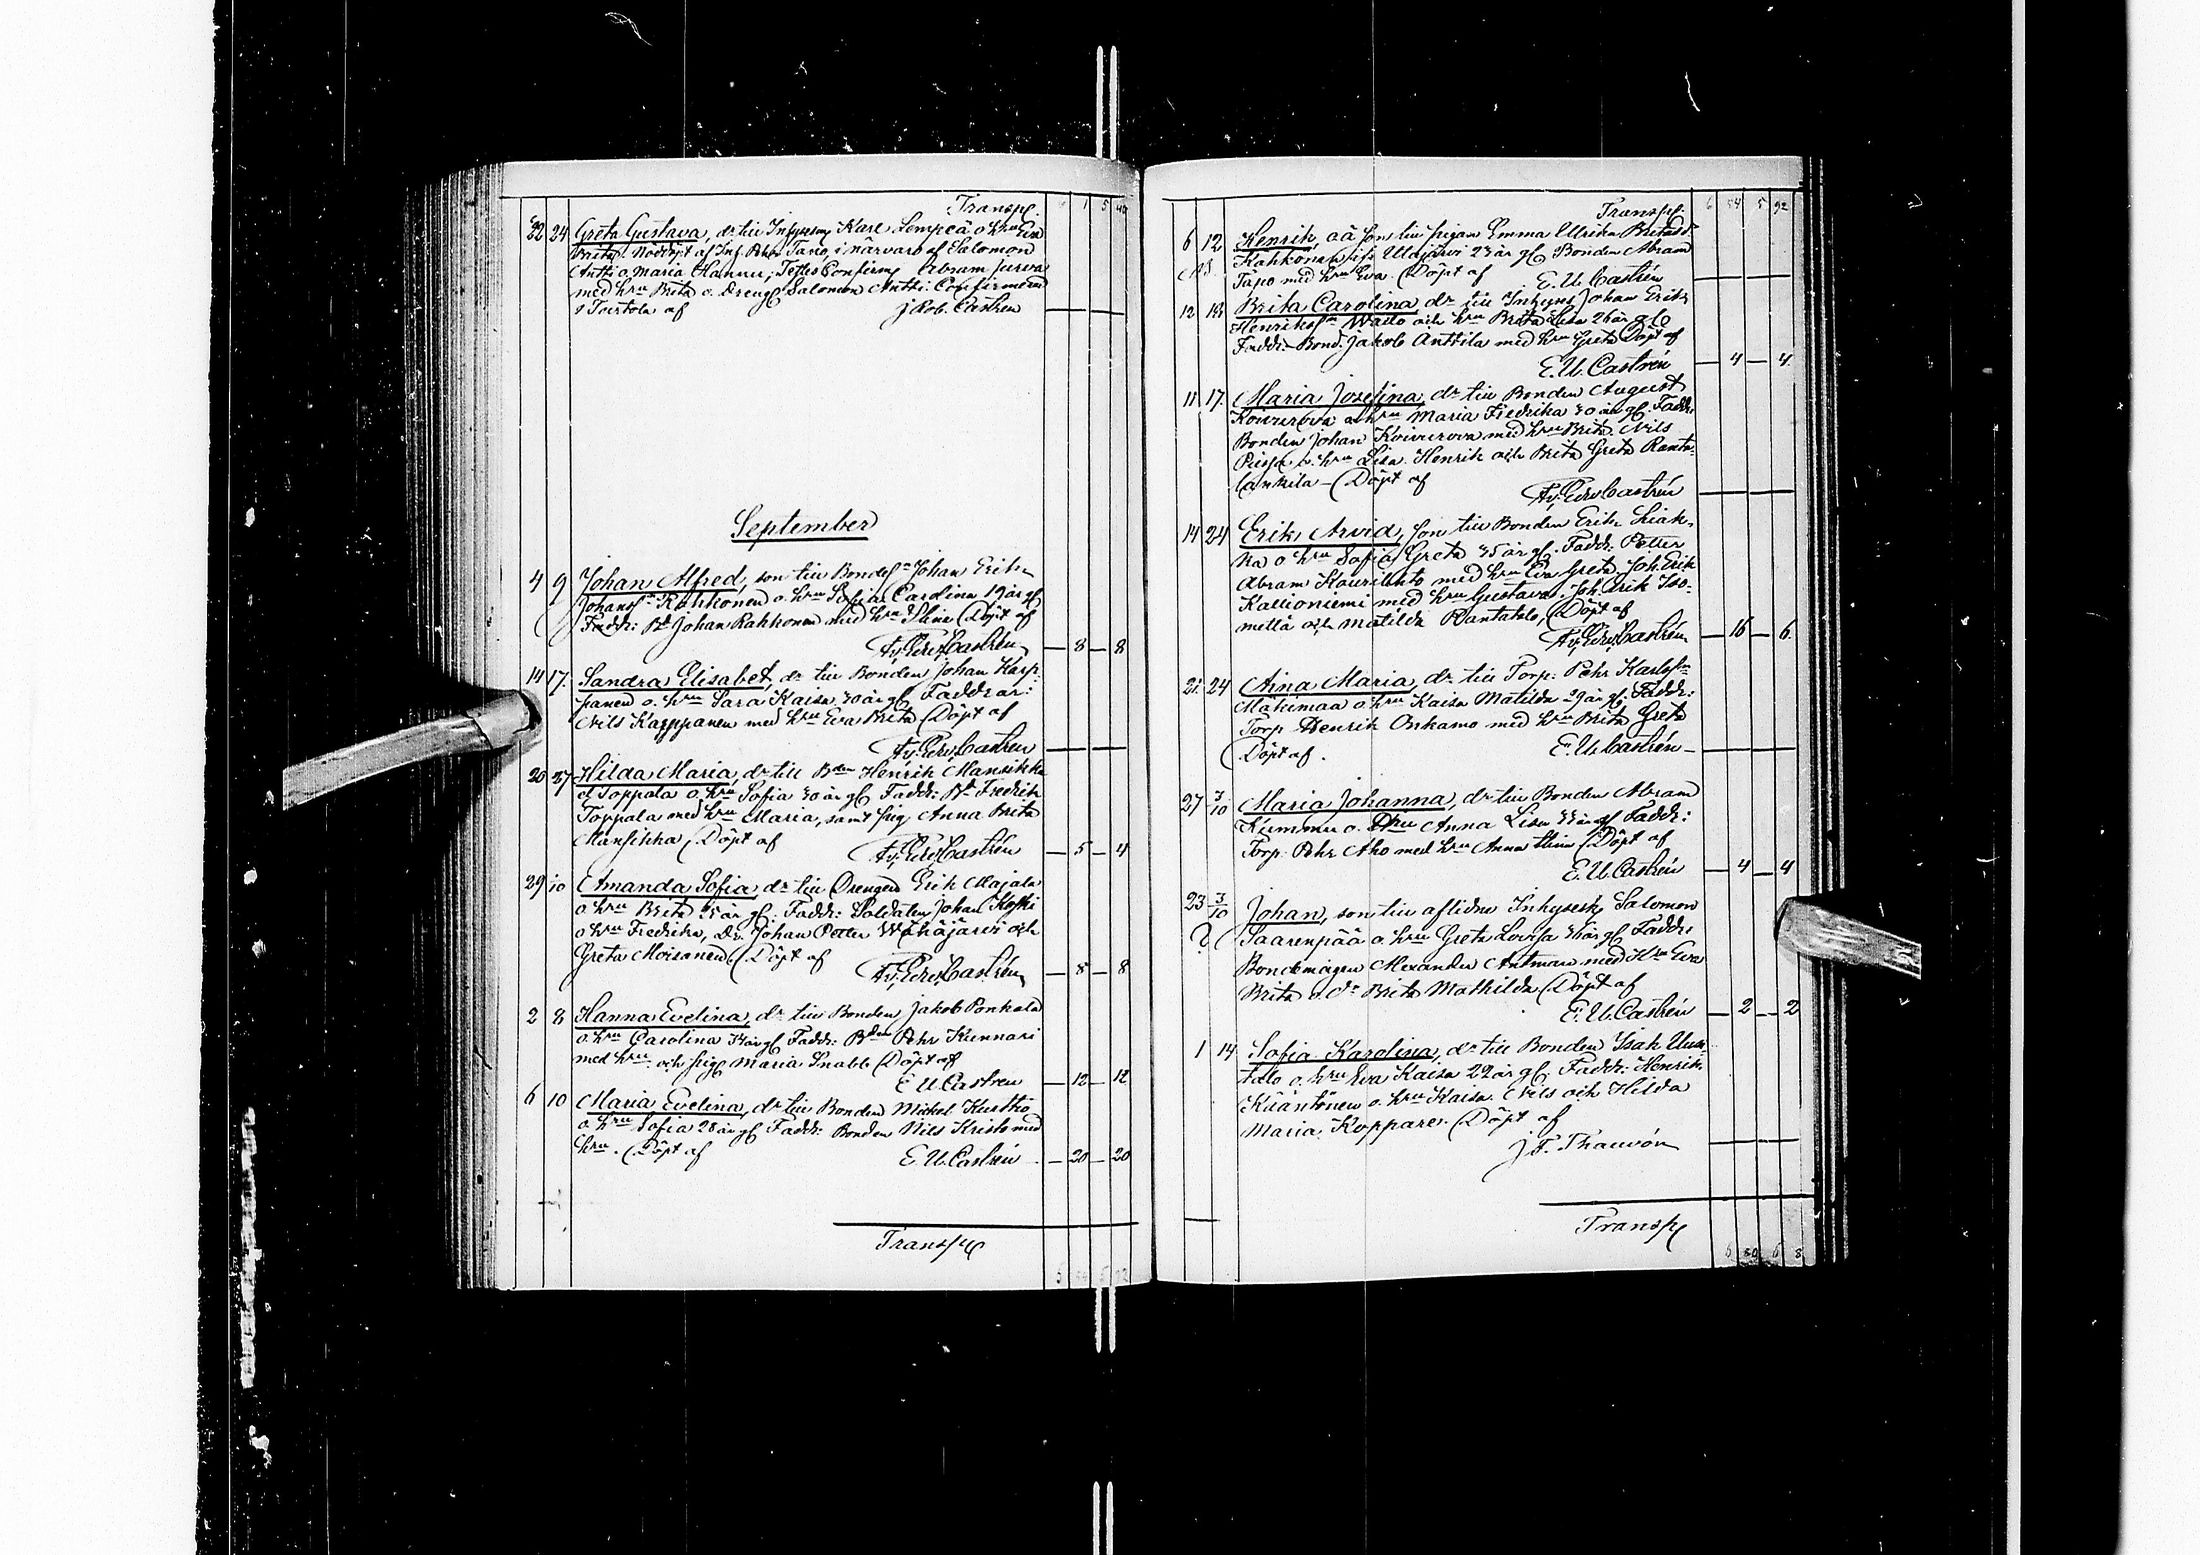 Transp.
22 24 Greta Gustava, dr till Inhysesm Karl Lempeä o hru Eva
Brita. Nöddöpt af Inh. Pehr Tano, i närvaro af Salomon
Antti o. Maria Hannu; Testes Confirm Abram Jurva
med hru Brita o. Dreng Salomon Antti. Confirmerad
i Toistola af Jakob Castrén
September
4 9 Johan Alfred, son till Bondes. Johan Erik
Johans. Rahkonen o. hru Sofia Carolina 19 år gl
Faddr: Bd Johan Rahkonen med hru Stina Döpt af
Castrén 8 8
14 17. Sandra Elisabet, dr till Bonden Johan Karp-
panen o. hru Sara Kaisa 30 år gl Faddrar:
Nils Karppanen med hru Eva Brita Döpt af
Castrén
20 27 Hilda Maria, dr till Bden Henrik Mansikka
Toppala o. hru Sofia 30 år gl Faddr: Bd Fredrik
Toppala med hru Maria, samt pig. Anna Brita
Mansikka, Döpt af Castrén 5 4
29 10 Amanda Sofia, dr till Drengen Erik Majala
o. hru Brita 35 år gl. Faddr: Soldaten Johan Koski
o hru Fredrika, Dr. Johan Petter Wähäjärvi och
Greta Moisanen. Döpt af Castrén 8 8
2 8 Hanna Evelina, dr till Bonden Jakob Ponkala
o. hru Carolina år gl Faddr: Bden Pehr Kunnari
med hru och pig. Maria Snabb Döpt af
E. U. Castrén 12 12
6 10 Maria Evelina, dr till Bonden Mickel Kustho
o. hru Sofia 28 år gl Faddr: Bonden Nils Kristo med
hru. Döpt af E. U. Castrén 20 20
Transp
Transp. 6 54 5 92
6 12 Henrik, oä son till pigan Emma Ulrika
Rahkonen ifr Uleåjärvi 23 år gl Bonden Abram
Tapo med hru Eva. Döpt af E. U. Castrén
12 18 Brita Carolina dr till Inhyns Johan Erik
Henriks. Wailo och hru Brita Lisa 26 år gl
Faddr. Bond. Jakob Anttila med hru Greta Döpt af
E. U. Castrén 4 4
11 17. Maria Josefina, dr till Bonden August
Koivurova och hru Maria Fredrika 30 år gl. Faddr:
Bonden Johan Koivurova med hru Brita. Nils
o. hru Lisa. Henrik och Brita Greta Ranta-
lankila Döpt af
Castrén
14 24 Erik Arvid, son till Bonden Erik Liak-
ka o hru Sofia Greta 35 år gl. Faddr: Petter
Abram Kauvilehto med hru Eva Greta Joh. Erik
Kallioniemi med hru Gustava. Joh. Erik Iso-
mettä och Matilda Rantatalo, Döpt af
Castrén 16 6
21. 24 Aina Maria, dr till Torp. Pehr Karlsson
Mäkimaa o. hru Kaisa Matilda 29 år gl. Faddr:
Torp Henrik Onkamo med hru Brita Greta
Döpt af. E. U. Castrén
27 3/10 Maria Johanna, dr till Bonden Abram
Kummu o. hru Anna Lisa 33 år gl Faddr:
Torp. Pehr Aho med hru Anna Stina Döpt af
E. U. Castrén 4 4
23 3/10 Johan, son till aflidne Inhysesk. Salomon
? Saarenpää o. hru Greta Lovisa 36 år gl Faddr:
Bondemågen Alexander Antman med Hru Eva
Brita o. Dr Brita Mathilda Döpt af
E. U. Castrén 2 2
1 14 Sofia Karolina, dr till Bonden Isak Uusi-
talo o. hru Eva Kaisa 22 år gl. Faddr: Henrik
Kääntönen o. hru Kaisa. Nils och Hilda
Maria Koppare. Döpt af
J. F. Thauvón
Transp
6 80 6 8